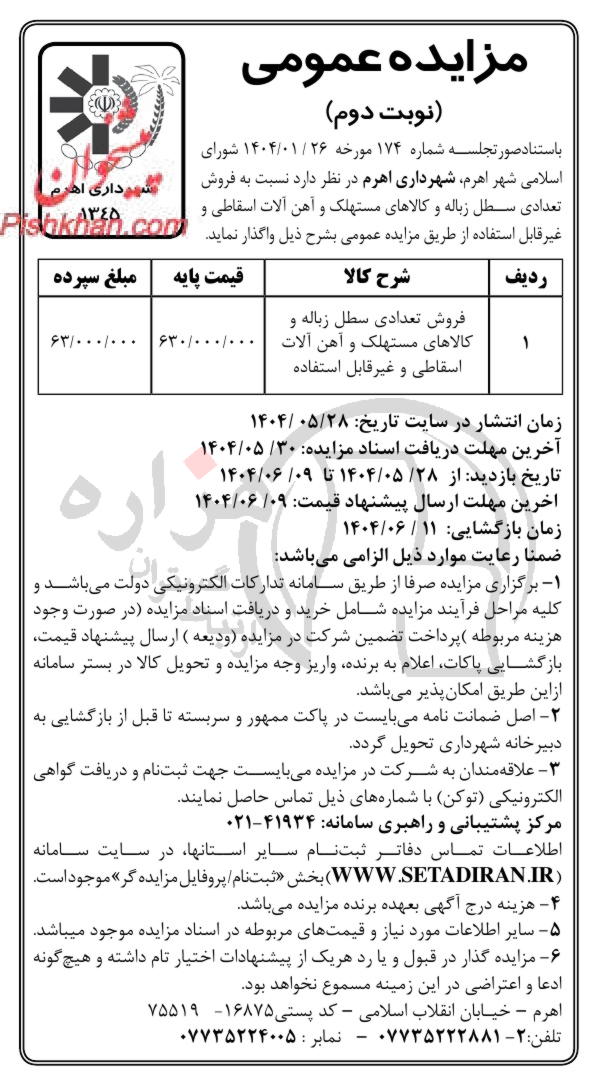 مزایده عمومی
(نوبت دوم)
شهرداری اهرم
۱۳۴۵
پیشخوان
Pishkhan.com
باستنادصورتجلسه شماره ۱۷۴ مورخه ۲۶ /۱۴۰۴/۰۱ شورای
اسلامی شهر اهرم، شهرداری اهرم در نظر دارد نسبت به فروش
تعدادی سطل زباله و کالاهای مستهلک و آهن آلات اسقاطی و
غیرقابل استفاده از طریق مزایده عمومی بشرح ذیل واگذار نماید.
ردیف شرح کالا قیمت پایه مبلغ سپرده
۱ فروش تعدادی سطل زباله و ۶۳۰/۰۰۰/۰۰۰ ۶۳/۰۰۰/۰۰۰
کالاهای مستهلک و آهن آلات
اسقاطی و غیرقابل استفاده
زمان انتشار در سایت تاریخ: ۱۴۰۴/ ۰۵/۲۸
آخرین مهلت دریافت اسناد مزایده: ۳۰/ ۱۴۰۴/۰۵
تاریخ بازدید: از ۲۸ /۱۴۰۴/۰۵ تا ۰۹/ ۱۴۰۴/۰۶
اخرین مهلت ارسال پیشنهاد قیمت: ۰۹/ ۱۴۰۴/۰۶
زمان بازگشایی: ۱۱ /۱۴۰۴/۰۶
ضمنا رعایت موارد ذیل الزامی می‌باشد:
۱- برگزاری مزایده صرفا از طریق سامانه تدارکات الکترونیکی دولت می‌باشد و
کلیه مراحل فرآیند مزایده شامل خرید و دریافت اسناد مزایده (در صورت وجود
هزینه مربوطه )پرداخت تضمین شرکت در مزایده (ودیعه ) ارسال پیشنهاد قیمت،
بازگشایی پاکات، اعلام به برنده، واریز وجه مزایده و تحویل کالا در بستر سامانه
ازاین طریق امکان‌پذیر می‌باشد.
۲- اصل ضمانت نامه می‌بایست در پاکت ممهور و سربسته تا قبل از بازگشایی به
دبیرخانه شهرداری تحویل گردد.
۳- علاقه‌مندان به شرکت در مزایده می‌بایست جهت ثبت‌نام و دریافت گواهی
الکترونیکی (توکن) با شماره‌های ذیل تماس حاصل نمایند.
مرکز پشتیبانی و راهبری سامانه: ۴۱۹۳۴-۰۲۱
اطلاعات تماس دفاتر ثبت‌نام سایر استانها، در سایت سامانه
(WWW.SETADIRAN.IR)بخش «ثبت‌نام/پروفایل مزایده گر» موجود است.
۴- هزینه درج آگهی بعهده برنده مزایده می‌باشد.
۵- سایر اطلاعات مورد نیاز و قیمت‌های مربوطه در اسناد مزایده موجود میباشد.
۶- مزایده گذار در قبول و یا رد هریک از پیشنهادات اختیار تام داشته و هیچ‌گونه
ادعا و اعتراضی در این زمینه مسموع نخواهد بود.
اهرم - خیابان انقلاب اسلامی - کد پستی۱۶۸۷۵- ۷۵۵۱۹
تلفن:۲- ۰۷۷۳۵۲۲۲۸۸۱ - نمابر : ۰۷۷۳۵۲۲۴۰۰۵
هزاره